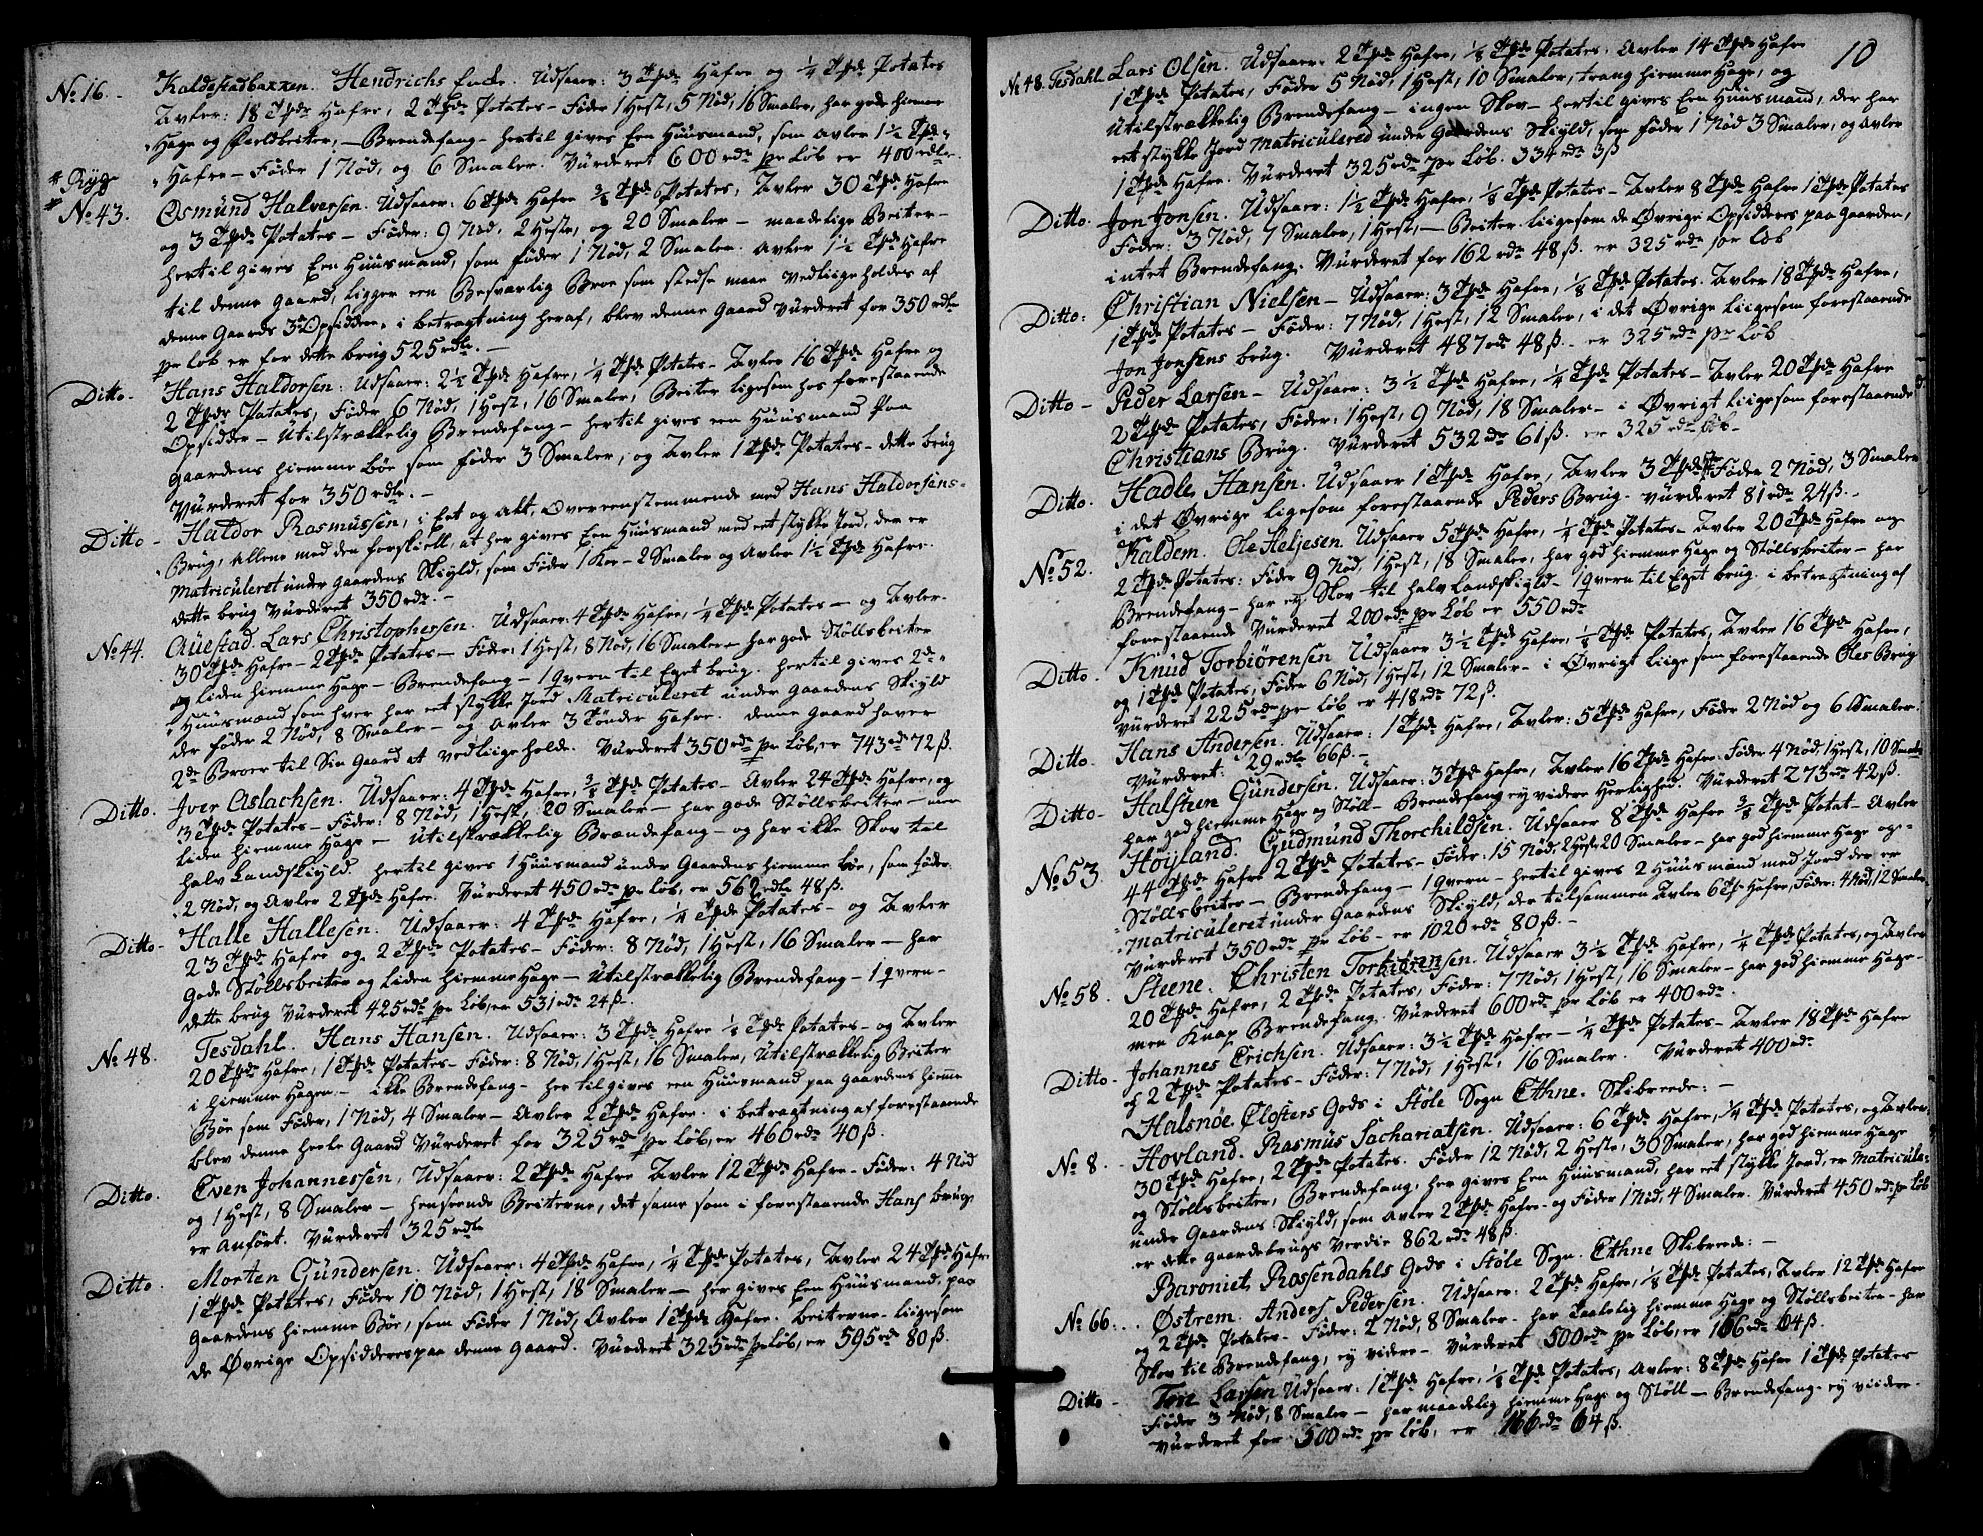 No 16. Kaldestadbakken. Hendrichs Encke. Udsaaer: 3 Tønder Hafre og 1/4 Tønde Potates
Avler: 18 Tønder Hafre, 2 Tønder Potates – Føder 1 Hest, 5 Nød, 16 Smaler, har gode hiemme
Hage og Beiter, – Brendefang – hertil gives Een Huusmand, som avler 1 1/2 Tønde
Hafre – Føder 1 Nød, og 6 Smaler. Vurderet 600 rdr pr Løb er 400 rdlr.
Ryg
No 43. Osmund Halversen. Udsaaer: 6 Tønder Hafre 3/8 Tønde Potates, Avler 30 Tønder Hafre
og 3 Tønder Potates – Føder: 9 Nød, 2 Heste, og 20 Smaler – maadelige Beiter –
hertil gives Een Huusmand, som føder 1 Nød, 2 Smaler. avler 1 1/2 Tønde Hafre
til denne Gaard, ligger een Besværlig Broe som stedse maae vedliigeholdes af
denne Gaards 3de Opsiddere, i betragtning heraf, blev denne Gaard vurderet for 350 rdlr
pr Løb er for dette brug 525 rdlr. –
Ditto – Hans Haldorsen: Udsaaer: 2 1/2 Tønde Hafre, 1/4 Tønde Potates – Avler 16 Tønder Hafre og
2 Tønder Potates, Føder 6 Nød, 1 Hest, 16 Smaler, Beiter ligesom hos forestaaende
Opsidder – Utilstrækkelig Brendefang – hertil gives een Huusmand paa
Gaardens hiemme Bøe som føder 3 Smaler, og Avler 1 Tønde Potates – dette brug
Vurderet for 350 rdlr. –
Ditto – Haldor Rasmussen, i Eet og Alt, Overeenstemmende med Hans Haldorsens
Brug, Allene med den forskiell, at her gives Een Huusmand med eet stykke Jord, der er
Matriculeret under Gaardens Skyld, som føder 1 Koe – 2 Smaler og Avler 1 1/2 Tønde Hafre.
dette brug Vurderet 350 rdr. –
No 44. Auestad. Lars Christophersen. Udsaaer: 4 Tønder Hafre, 1/4 Tønde Potates – og Avler.
30 Tønder Hafre – 2 Tønder Potates – Føder: 1 Hest, 8 Nød, 16 Smaler – har gode Støllsbeiter
og liden hiemme Hage – Brendefang – 1 Qvern til Eget brug. hertil gives 2de
Huusmænd som hver har eet stykke Jord Matriculeret under Gaardens Skiyld
der føder 2 Nød, 8 Smaler – og Avler 3 Tønder Hafre. denne Gaard haver
2de Broer til Sin Gaard at vedliigeholde. Vurderet 350 rdr pr Løb, er 743 rdr 72 ß.
Ditto. Iver Aslachsen. Udsaaer: 4 Tønder Hafre, 3/8 Tønde Potates – Avler 24 Tønder Hafre, og
3 Tønder Potates – Føder: 8 Nød, 1 Hest, 20 Smaler – har gode Støllsbeiter – men
liden hiemme Hage – utilstrækkelig Brændefang – og har ikke Skov til
halv Landskiyld. hertil gives 1 Huusmand under Gaardens hiemme Bøe, som føder
2 Nød, og Avler 2 Tønder Hafre. Vurderet 450 rdr pr Løb, er 562 rdlr 48 ß.
Ditto – Halle Hallesen. Udsaaer: 4 Tønder Hafre, 1/4 Tønde Potates – og Avler
23 Tønder Hafre og 2 Tønder Potates – Føder: 8 Nød, 1 Hest, 16 Smaler – har
Gode Støllsbeiter og liden hiemme Hage – utilstrækkelig Brendefang – 1 Qvern –
dette brug Vurderet 425 rdlr pr Løb, er 531 rdr 24 ß.
No 48. Tesdahl. Hans Hansen. Udsaaer: 3 Tønder Hafre 1/8 Tønde Potates – og Avler
20 Tønder Hafre, 1 Tønde Potates – Føder: 8 Nød, 1 Hest, 16 Smaler, utilstrækkelig Beiter
i hiemme Hagen – ikke Brendefang – her til gives een Huusmand paa Gaardens hieme
Bøe som Føder, 1 Nød, 4 Smaler – Avler 2 Tønder Hafre. i betragtning af forestaaende
blev denne heele Gaard Vurderet for 325 rdr pr Løb, er 460 rdr 40 ß.
Ditto. Even Johannessen, Udsaaer: 2 Tønder Hafre Avler 12 Tønder Hafre – Føder: 4 Nød
og 1 Hest, 8 Smaler – henseende Beiterne, det same som i forestaaende Hans brug
er Anført. Vurderet 325 rdlr
Ditto. Morten Gundersen. Udsaaer: 4 Tønder Hafre, 1/4 Tønde Potates, Avler 24 Tønder Hafre
1 Tønde Potates, Føder 10 Nød, 1 Hest, 18 Smaler – her gives Een Huusmand, paa
Gaardens hiemme Bøe, som Føder 1 Nød, Avler 1 Tønde Hafre. beiterne liigesom
de Øvrige Opsidderes paa denne Gaard. Vurderet 325 rdr pr Løb, er 595 rdr 80 ß.
10
No 48. Tesdahl Lars Olsen. Udsaaer. 2 Tønder Hafre, 1/8 Tønde Potates. Avler 14 Tønder Hafre
1 Tønde Potates, Føder 5 Nød, 1 Hest, 10 Smaler, trang hiemme Hage, og
utilstrækkelig Brendefang – ingen Skov – hertil gives Een Huusmand, der har
eet stykke Jord Matriculered under Gaardens Skiyld, som føder 1 Nød 3 Smaler, og Avler
1 Tønde Hafre. Vurderet 325 rdr pr Løb. 334 rdr 3 ß
Ditto. Jon Jonsen. Udsaaer: 1 1/2 Tønde Hafre, 1/8 Tønde Potates – Avler 8 Tønder Hafre 1 Tønde Potates
Føder: 3 Nød, 7 Smaler, 1 Hest, – Beiter liigesom de Øvrige Opsidderes paa Gaarden,
intet Brendefang. Vurderet for 162 rdr 48 ß. er 325 rdr pr Løb
Ditto: Christian Nielsen – Udsaaer: 3 Tønder Hafre, 1/8 Tønde Potates. Avler 18 Tønder Hafre,
1 Tønde Potates – Føder: 7 Nød, 1 Hest, 12 Smaler, i det Øvrige liigesom forestaaende
Jon Jonsens brug. Vurderet 487 rdr 48 ß. – er 325 rdr pr Løb
Ditto – Peder Larsen – Udsaaer: 3 1/2 Tønde Hafre, 1/4 Tønde Potates – Avler 20 Tønder Hafre
2 Tønder Potates, Føder: 1 Hest, 9 Nød, 18 Smaler – i Øvrigt liigesom forestaaende
Christians Brug. Vurderet 532 rdr 61 ß. er 325 rdr Løb –
Ditto. Hadle Hansen. Udsaaer 1 Tønde Hafre, Avler 3 Tønder Føder 2 Nød, 3 Smaler
i det Øvrige ligesom forestaaende Peders Brug. vurderet 81 rdr 24 ß. –
No 52. Kaldem. Ole Heljesen. Udsaaer 5 Tønder Hafre, 1/4 Tønde Potates – Avler 20 Tønder Hafre og
2 Tønder Potates: Føder 9 Nød, 1 Hest, 18 Smaler, har god hiemme Hage og Støllsbeiter – har
Brendefang – har ey Skov til halv Landskiyld – 1 qvern til Eget brug. i betragtning af
forestaaende Vurderet 200 rdr pr Løb er 550 rdr
Ditto. Knud Torbiørensen Udsaaer 3 1/2 Tønde Hafre, 1/8 Tønde Potates, Avler 16 Tønder Hafre,
og 1 Tønde Potates, Føder 6 Nød, 1 Hest, 12 Smaler – i Øvrigt liigesom forestaaende Oles Brug
vurderet 225 rdr pr Løb er 418 rdr 72 ß.
Ditto. Hans Andersen. Udsaaer: 1 Tønde Hafre, Avler: 5 Tønder Hafre, Føder 2 Nød og 6 Smaler.
Vurderet: 29 rdlr 66 ß. –
Ditto – Halsteen Gundersen. Udsaaer: 3 Tønder Hafre, Avler 16 Tønder Hafre. Føder 4 Nød, 1 Hest, 10 Smaler
har god hiemme Hage og Støll – Brendefang ey videre Herlighed. Vurderet 273 rdr 42 ß.
No 53. Høyland. Gudmund Thorchildsen. Udsaaer 8 Tønder Hafre 3/8 Tønde Potat – Avler
44 Tønder Hafre 2 Tønder Potates – Føder: 15 Nød, 2 Heste 20 Smaler – har god hiemme Hage og
Støllsbeiter – Brendefang – 1 Qvern – hertil gives 2 Huusmænd med Jord der er
Matriculeret under Gaardens Skiyld, der tilsammen Avler 6 Td Hafre, Føder: 4 Nød, 12 Smaler
Vurderet 350 rdr pr Løb – er 1020 rdr 80 ß. –
No 58. Steene. Christen Torbiørensen. Udsaaer 3 1/2 Tønde Hafre, 1/4 Tønde Potates, og Avler
20 Tønder Hafre, 2 Tønder Potates, Føder: 7 Nød, 1 Hest, 16 Smaler – har god hiemme Hage –
men Knap Brendefang. Vurderet 600 rdr pr Løb er 400 rdr.
Ditto. Johannes Erichsen. Udsaaer: 3 1/2 Tønde Hafre – 1/4 Tønde Potates – Avler 18 Tønder Hafre
og 2 Tønder Potates – Føder: 7 Nød, 1 Hest, 16 Smaler. Vurderet 400 rdr
Halsnøe Closters Gods i Støle Sogn Ethne. Skibreede: –
No 8. Hovland. Rasmus Sachariatsen. Udsaaer: 6 Tønder Hafre, 1/4 Tønde Potates, og Avler
30 Tønder Hafre, 2 Tønder Potates. Føder 12 Nød, 2 Heste, 30 Smaler, har god hiemme Hage
og Støllsbeiter, Brendefang, her gives Een Huusmand, har eet stykke Jord, er Matricule:
under Gaardens Skiyld, som Avler 2 Tønder Hafre – og Føder 1 Nød, 4 Smaler. Vurderet 450 rdr pr Løb
er dette Gaardebrugs Verdie 862 rdr 48 ß.
Baroniet Rosendahls Gods i Støle Sogn. Ethne Skibreede: –
No 66: Østrem. Anders Pedersen. Udsaaer: 2 Tønder Hafre, 1/8 Tønde Potates, Avler 12 Tønder Hafre
og 2 Tønder Potates – Føder: 2 Nød, 8 Smaler – har taalelig hiemme Hage og Støllsbeiter – har
Skov til Brendefang, ey videre – Vurderet 500 rdr pr Løb, er 166 rdr 64 ß.
Ditto – Ton Larsen Udsaaer: 1 Tønde Hafre, 1/8 Tønde Potates, Avler: 8 Tønder Hafre 1 Tønde Potates
Føder 3 Nød, 8 Smaler – har maadelig hiemme Hage og Støll – Brendefang ey viidere –
Vurderet for 500 rdr pr Løb, er 166 rdr 64 ß.